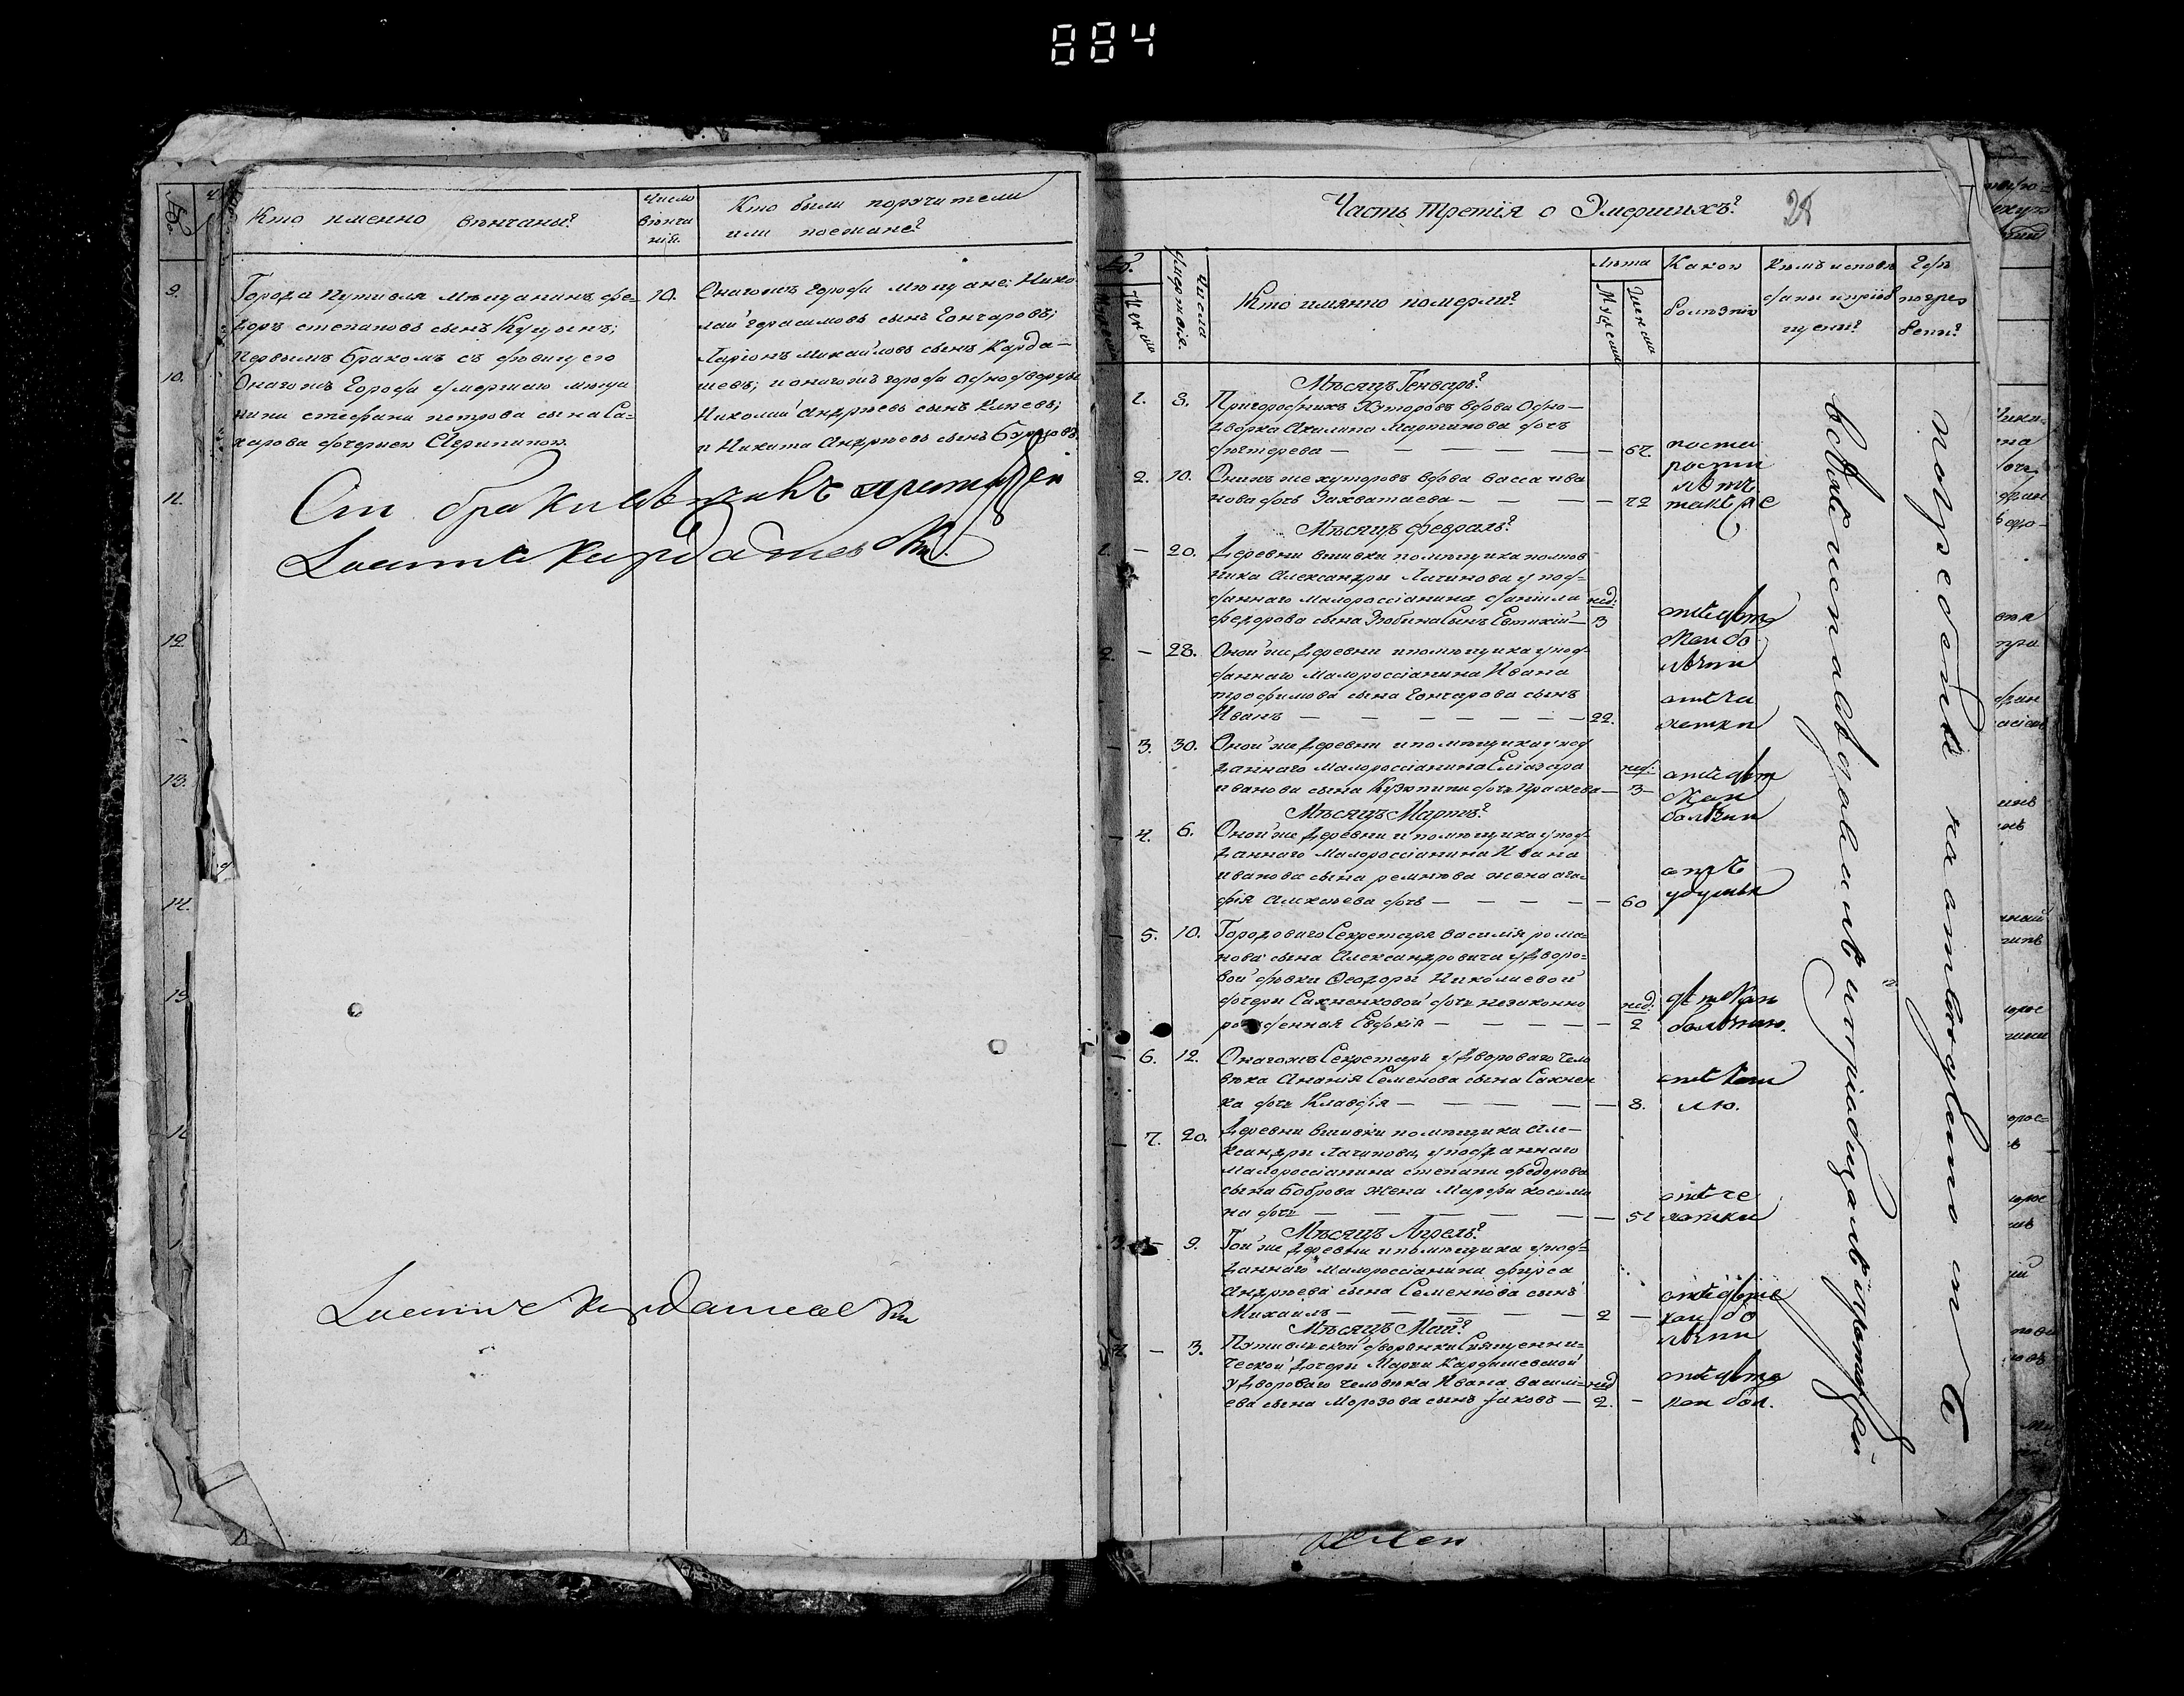 884
№
Кто именно вѣнчаны?
Число
вѣнча
нія.
Кто были поручители
или поезжане?
9.
Города Путивля мѣщанинъ Фе-
доръ степановъ сынъ Куцынъ;
первымъ бракомъ съ девицею
10.
Онагожъ города умершаго мѣща
нина стефана петрова сына За-
харова дочерью Агрипиною
10.
Онагожъ города мѣщане: Нико
лай герасимовъ сынъ Гончаровъ;
Ларіонъ Михайловъ сынъ Карда-
шевъ; и онагожъ города однодворцы
Николай Андрѣевъ сынъ Клюевъ;
и Никита Андрѣевъ сынъ Бурцовъ.
11.
Сіи браки вѣнчалъ протоіерей
Іоаннъ Кардашевскій.
12
13.
14.
15
Іоаннъ Кардашевскій
Часть третія о Умершихъ?
28
№.
Мужеска
Женска
Числа
умертвія.
Кто имянно померли?
Лѣта
Мужеска
Женска
Какою
болезнію
Кѣмъ исповѣ
даны и пріоб
щены?
Гдѣ
погре
бены?
Мѣсяцъ Генварь?
1. 8.
Пригородныхъ Хуторовъ вдова Одно-
дворка Акилина Мартинова дочь
дѣхтерева — 67.
постa
рости
2. 10.
Онихъ же хуторовъ вдова васса ива
нова дочь Захватаева — 72
лѣтъ
такъже
Мѣсяцъ февраль?
1. — 20.
Деревни вшивки помѣщика полков
ника Александры Лачинова у под-
даннаго малороссіанина даніила
федорова сына Зюбина сынъ Евтихій — нед: 3
отъ дѣтс
кой бо
лѣзни
2. — 28.
Оной же деревни и помѣщика у под-
даннаго малороссіанина Ивана
трофимова сына гончарова сынъ
Иванъ — 22.
отъ ча
хотки
— 3. 30.
Оной же деревни и помѣщика у под
даннаго малороссіанина Еліазара
иванова сына Кузюпина дочь Праскева — нед: 3 —
отъ дѣт
ской
болѣзни
Мѣсяцъ Мартъ?
— 4. 6.
Оной же деревни и помѣщика у под-
даннаго малороссіанина Ивана
иванова сына ремнѣва жена ага-
фія Алексѣева дочь — 60
отъ
удушья
— 5. 10.
Городоваго Секретаря василія рома-
нова сына Александровича у дворо-
вой девки Феодоры Николаевой
дочери Сахненковой дочь незаконно
рожденная Евдокія — нед: 2
дѣтскою
болѣзнію.
— 6. 12.
Онагожъ Секретаря у двороваго чело
вѣка Ананія Семенова сына Сахнен
ка дочь Клавдія — 8.
отъ каш
лю.
— 7. 20.
Деревни вшивки помѣщика Але-
ксандры Лачинова, у подданнаго
малороссіанина степана федорова
сына Боброва жена Марфа косьми
на дочь — 51
отъ че
хотки
Мѣсяцъ Апрель?
3. — 9.
Той же деревни и помѣщика у под-
даннаго малороссіанина фирса
андрѣева сына Семенкова сынъ
Михаилъ — 2 —
отъ дѣтс
кой бо
лѣзни
Мѣсяцъ Май?
4. — 3.
Путивльской дворянки Священни-
ческой дочери Марѳы Кардашевской
у двороваго человѣка Ивана василі-
ева сына Морозова сынъ Іаковъ — нед 2. —
отъ дѣтс
кой бол.
всѣхъ исповѣдовалъ и пріобщалъ протоіерей
погребены на кладбищѣ